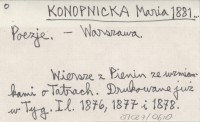 KONOPNICKA Maria 1881...
Poezje. – Warszawa.
Wiersze z Pienin ze wzmian-
kami o Tatrach. Drukowane już
w Tyg. Il. 1876, 1877 i 1878.